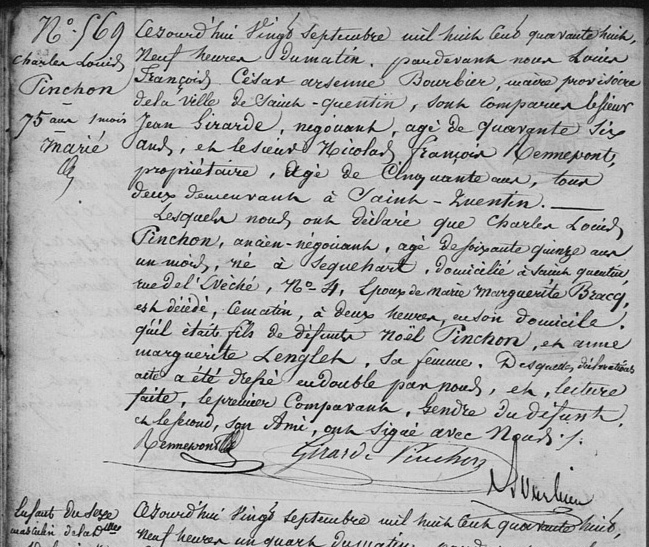 N.° 569
Charles Louis
Pinchon
75 ans 1 mois
marié
Cejourd'hui Vingt Septembre mil huit Cent quarante huit,
Neuf heures du matin. pardevant nous Louis
François César arsenne Bourbier, maire provisoire
de la Ville de Saint-Quentin, sont comparus le sieur
Jean Girarde, négociant, agé de quarante six
ans, et le sieur Nicolas François Rennewont,
propriétaire, agé de Cinquante ans, tous
deux demeurant à Saint-Quentin.
Lesquels nous ont déclaré que Charles Louis
Pinchon, ancien-négociant, agé de soixante quinze ans
un mois, né à Sequehart, domicilié à Saint quentin,
rue de l'Evêché, N.° 4, Epoux de marie Marguerite Bracq,
est décédé, ce matin, à deux heures, en son domicile.
qu'il était fils de défunts Noël Pinchon, et anne
marguerite Lenglet, sa femme. Desquelles déclarations
acte a été dressé en double par nous, et, lecture
faite, le premier Comparant, Gendre du défunt,
et le second, son Ami, ont signé avec Nous.
Rennewont Girarde Pinchon
Bourbier
Enfant du sexe
masculin de la D.lle
Cejourd'hui Vingt Septembre mil huit Cent quarante huit,
Neuf heures un quart du matin,